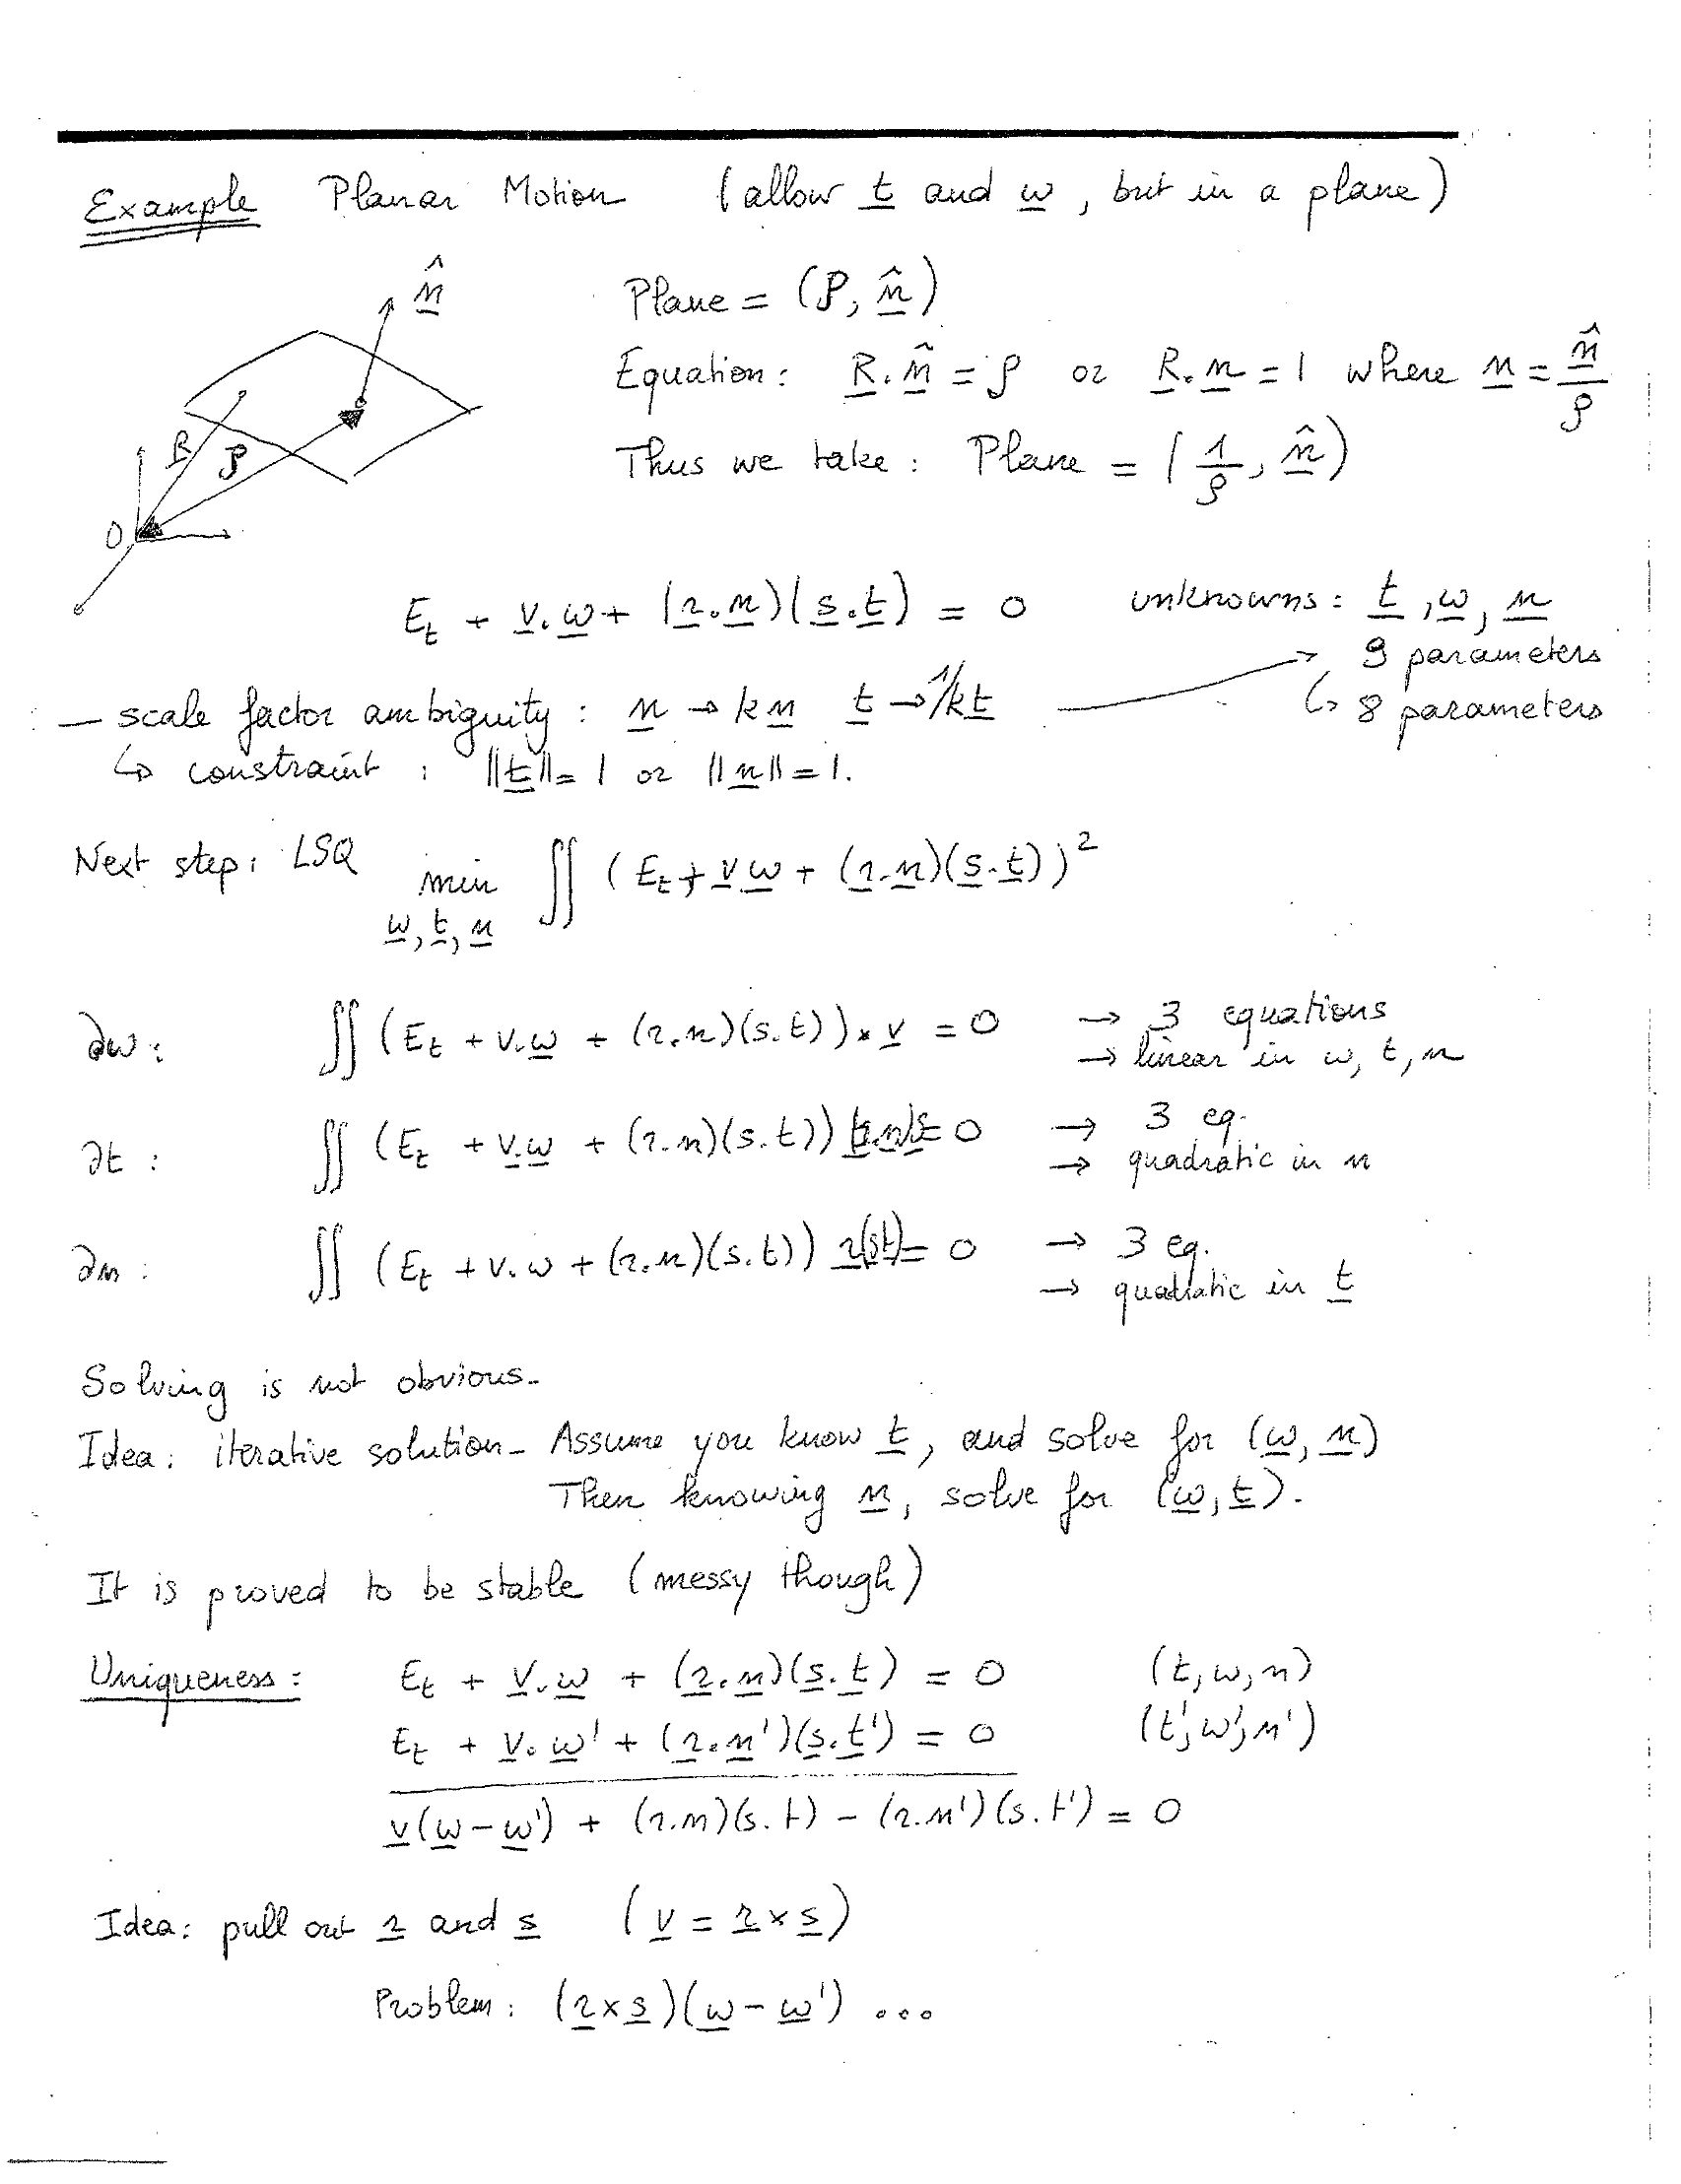 Example Planar Motion (allow t and ω, but in a plane)
n̂
Plane = (ρ, n̂)
Equation: R.n̂ = ρ or R.n = 1 where n = n̂/ρ
R ρ
Thus we take: Plane = (1/ρ, n̂)
O
E_t + v.ω + (r.n)(s.t) = 0 unknowns: t, ω, n
9 parameters
– scale factor ambiguity: n → kn t → 1/k t ↳ 8 parameters
↳ constraint: ||t|| = 1 or ||n|| = 1.
Next step: LSQ min ∬ (E_t + v ω + (r.n)(s.t))²
ω, t, n
∂ω: ∬ (E_t + v.ω + (r.n)(s.t)) * v = 0 → 3 equations
→ linear in ω, t, n
∂t: ∬ (E_t + v.ω + (r.n)(s.t)) (r.n)s = 0 → 3 eq.
→ quadratic in n
∂n: ∬ (E_t + v.ω + (r.n)(s.t)) r(s.t) = 0 → 3 eq.
→ quadratic in t
Solving is not obvious.
Idea: iterative solution. Assume you know t, and solve for (ω, n)
Then knowing n, solve for (ω, t).
It is proved to be stable (messy though)
Uniqueness: E_t + v.ω + (r.n)(s.t) = 0 (t, ω, n)
E_t + v.ω' + (r.n')(s.t') = 0 (t', ω', n')
v(ω-ω') + (r.n)(s.t) - (r.n')(s.t') = 0
Idea: pull out r and s (v = r×s)
Problem: (r×s)(ω-ω') ...